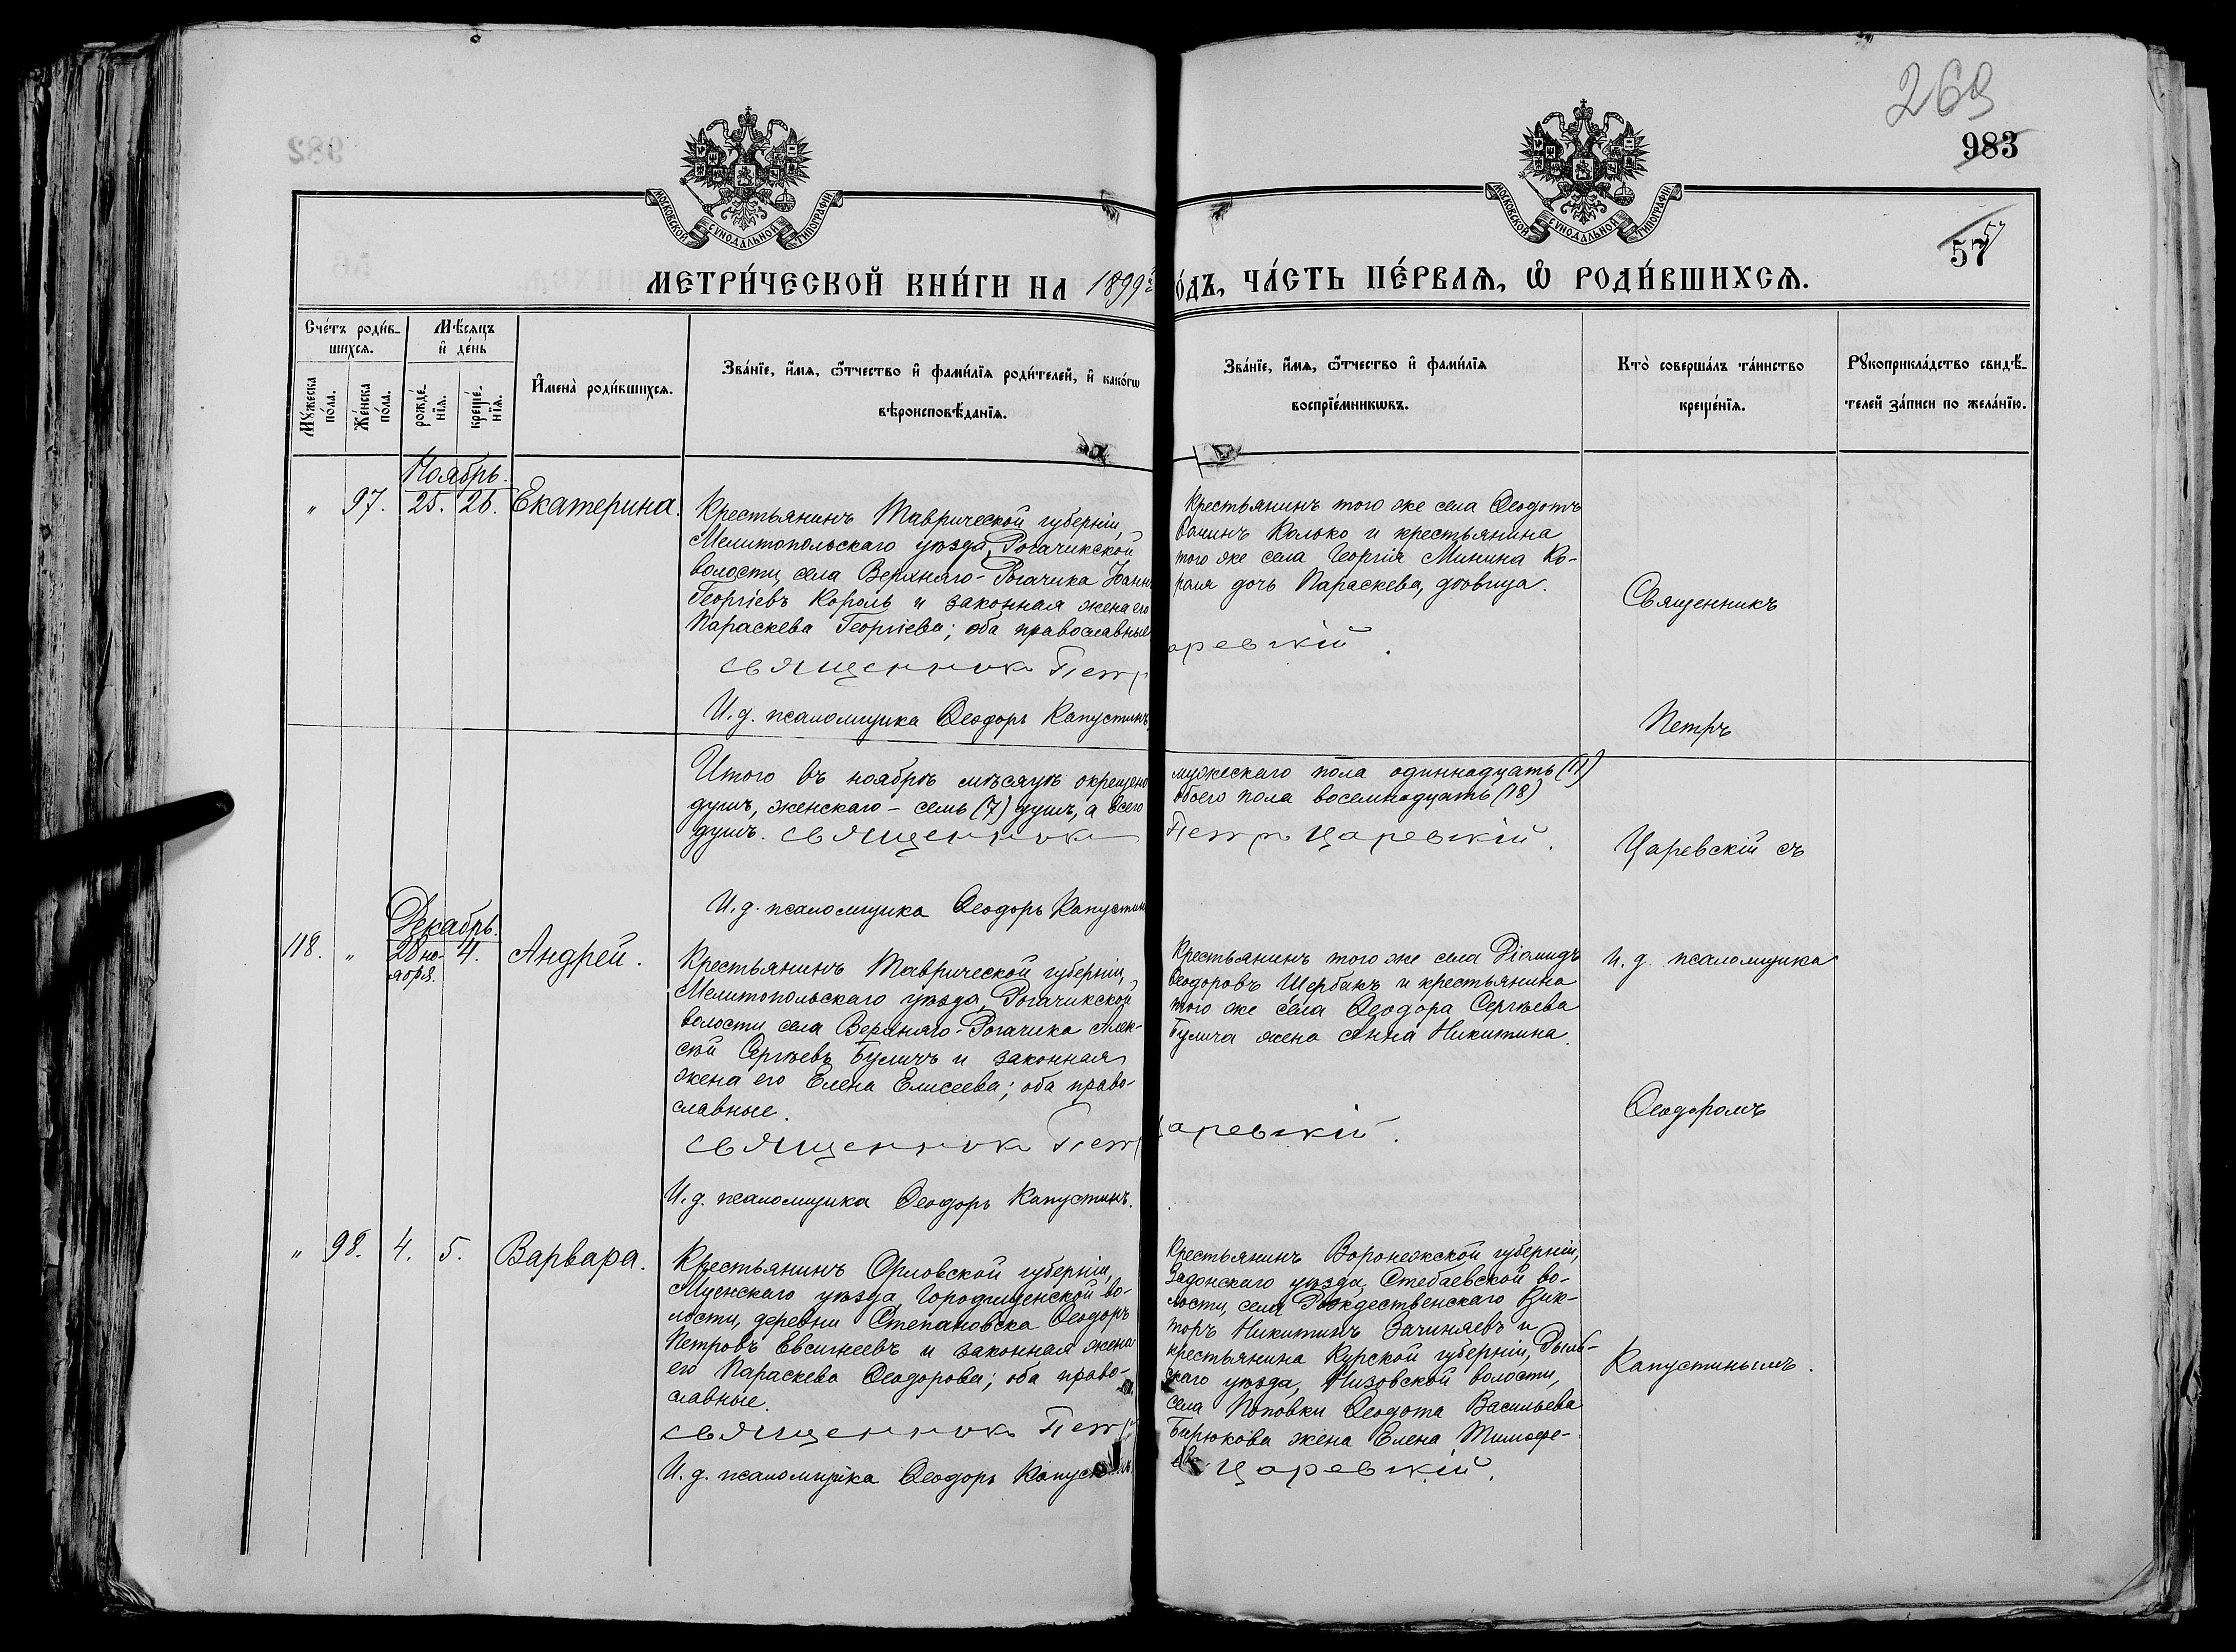 269
983
982
МОСКОВСКОЙ СУНОДАЛЬНОЙ ТИПОГРАФІИ
МОСКОВСКОЙ СУНОДАЛЬНОЙ ТИПОГРАФІИ
57
57
МЕТРИ́ЧЕСКОЙ КНИ́ГИ НА 1899 го́дъ, ЧА́СТЬ ПЕ́РВАѦ, Ѽ РОДИ́ВШИХСѦ.
Сче́тъ роди́в-
шихсѧ.
Мѣ́сѧцъ
и҆ де́нь
Мꙋ́жеска
по́ла.
Же́нска
по́ла.
рожде́-
нїѧ.
креще́-
нїѧ.
И҆мена̀ роди́вшихсѧ.
Зва́нїе, и҆́мѧ, ѻ҆́тчество и҆ фами́лїѧ роди́телей, и҆ како́гѡ
вѣроисповѣ́данїѧ.
Зва́нїе, и҆́мѧ, ѻ҆́тчество и҆ фами́лїѧ
воспрїе́мникѡвъ.
Кто̀ соверша́лъ та́инство
креще́нїѧ.
Рꙋкоприкла́дство свидѣ́-
телей за́писи по жела́нїю.
Ноябрь.
" 97. 25. 26. Екатерина.
Крестьянинъ Таврической губерніи,
Мелитопольскаго уѣзда, Рогачикской
волости, села Верхняго-Рогачика Іоаннъ
Георгіевъ Король и законная жена его
Параскева Георгіева; оба православные
Священникъ Петръ Царевскій.
И. д. псаломщика Ѳеодоръ Капустинъ
Крестьянинъ того же села Ѳеодотъ
Колько и крестьянина
того же села Георгія Минина Ко-
роля дочь Параскева, дѣвица.
Священникъ
Петръ
Царевскій съ
и. д. псаломщика
Ѳеодоромъ
Капустинымъ.
Итого въ ноябрѣ мѣсяцѣ окрещено мужескаго пола одиннадцать (11)
душъ, женскаго - семь (7) душъ, а всего обоего пола восемнадцать (18)
душъ. Священникъ Петръ Царевскій.
И. д. псаломщика Ѳеодоръ Капустинъ
Декабрь.
118. " 28 но- 4. Андрей.
ября.
Крестьянинъ Таврической губерніи,
Мелитопольскаго уѣзда, Рогачикской
волости, села Верхняго-Рогачика Алек-
сѣй Сергѣевъ Буличъ и законная
жена его Елена Елисеева; оба право-
славные.
Священникъ Петръ Царевскій.
И. д. псаломщика Ѳеодоръ Капустинъ.
Крестьянинъ того же села Діомидъ
Ѳеодоровъ Щербакъ и крестьянина
того же села Ѳеодора Сергѣева
Булича жена Анна Никитина.
" 98. 4. 5. Варвара.
Крестьянинъ Орловской губерніи,
Мценскаго уѣзда, Городищенской во-
лости, деревни Степановка Ѳеодоръ
Петровъ Евсигнеевъ и законная жена
его Параскева Ѳеодорова; оба право-
славные.
Священникъ Петръ Царевскій.
И. д. псаломщика Ѳеодоръ Капустинъ
Крестьянинъ Воронежской губерніи,
Задонскаго уѣзда, Стебаевской во-
лости, села Рождественскаго Вик-
торъ Никитинъ Зачиняевъ и
крестьянина Курской губерніи, Рыль-
скаго уѣзда, Низовской волости,
села Поповки Ѳеодота Васильева
Бирюкова жена Елена Тимоѳе-
ева.